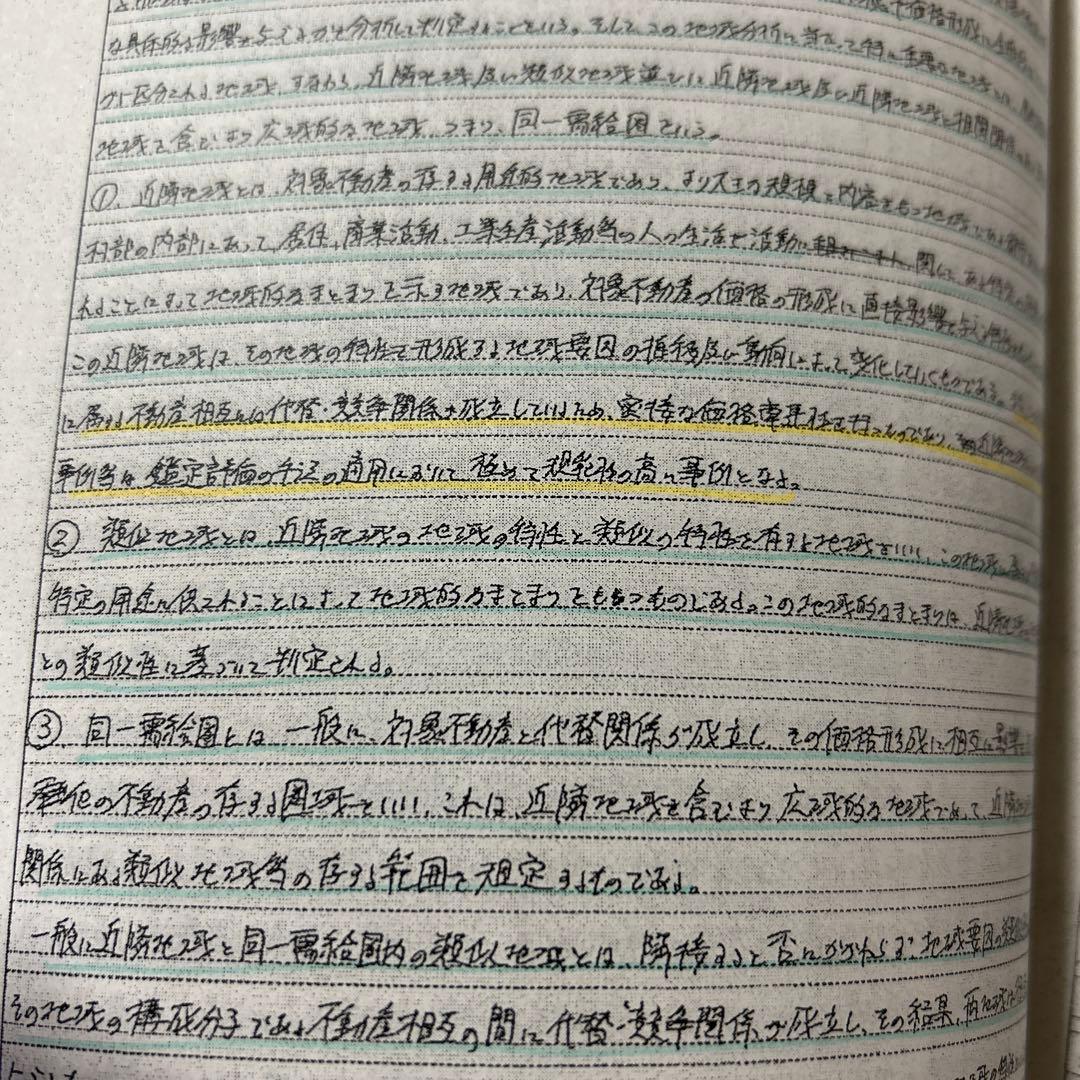 な具体的な影響を与えるかを分析して判定することをいう。そしてこの地域分析に当たって特に重要な地域は、
区分される地域、すなわち、近隣地域及び類似地域並びに近隣地域及び近隣地域と相関関係
地域を含むより広域的な地域、つまり、同一需給圏という。
①、近隣地域とは、対象不動産の存する用途的地域であり、より大きな規模と内容をもつ地域である
村部の内部にあって、居住、商業活動、工業生産活動等の人の生活と活動に 関して、ある特定の
れることによって地域的なまとまりを示す地域であり、対象不動産の価格の形成に直接影響を与える
この近隣地域は、その地域の特性を形成する地域要因の推移及び動向によって、変化していくものである。
に属する不動産相互には代替・競争関係が成立しているため、密接な価格牽連性を 近隣
事例等は、鑑定評価の手法の適用において極めて規範性の高い事例となる。
② 類似地域とは、近隣地域の地域の特性と類似の特性を有する地域をいい、この地域に
特定の用途に供されることによって地域的なまとまりをもつものである。この地域的なまとまりは、近隣
との類似性に基づいて判定される。
③ 同一需給圏とは 一般に、対象不動産と代替関係が成立し、その価格形成に相互に影響
他の不動産の存する圏域をいい、これは、近隣地域を含むより広域的な地域であって、近隣
関係にある類似地域等の存する範囲を規定するものである。
一般に近隣地域と同一需給圏内の類似地域とは、隣接すると否とにかかわらず、地域要因の類似
その地域の構成分子である不動産相互の間に代替・競争関係が成立し、その結果、両地域は